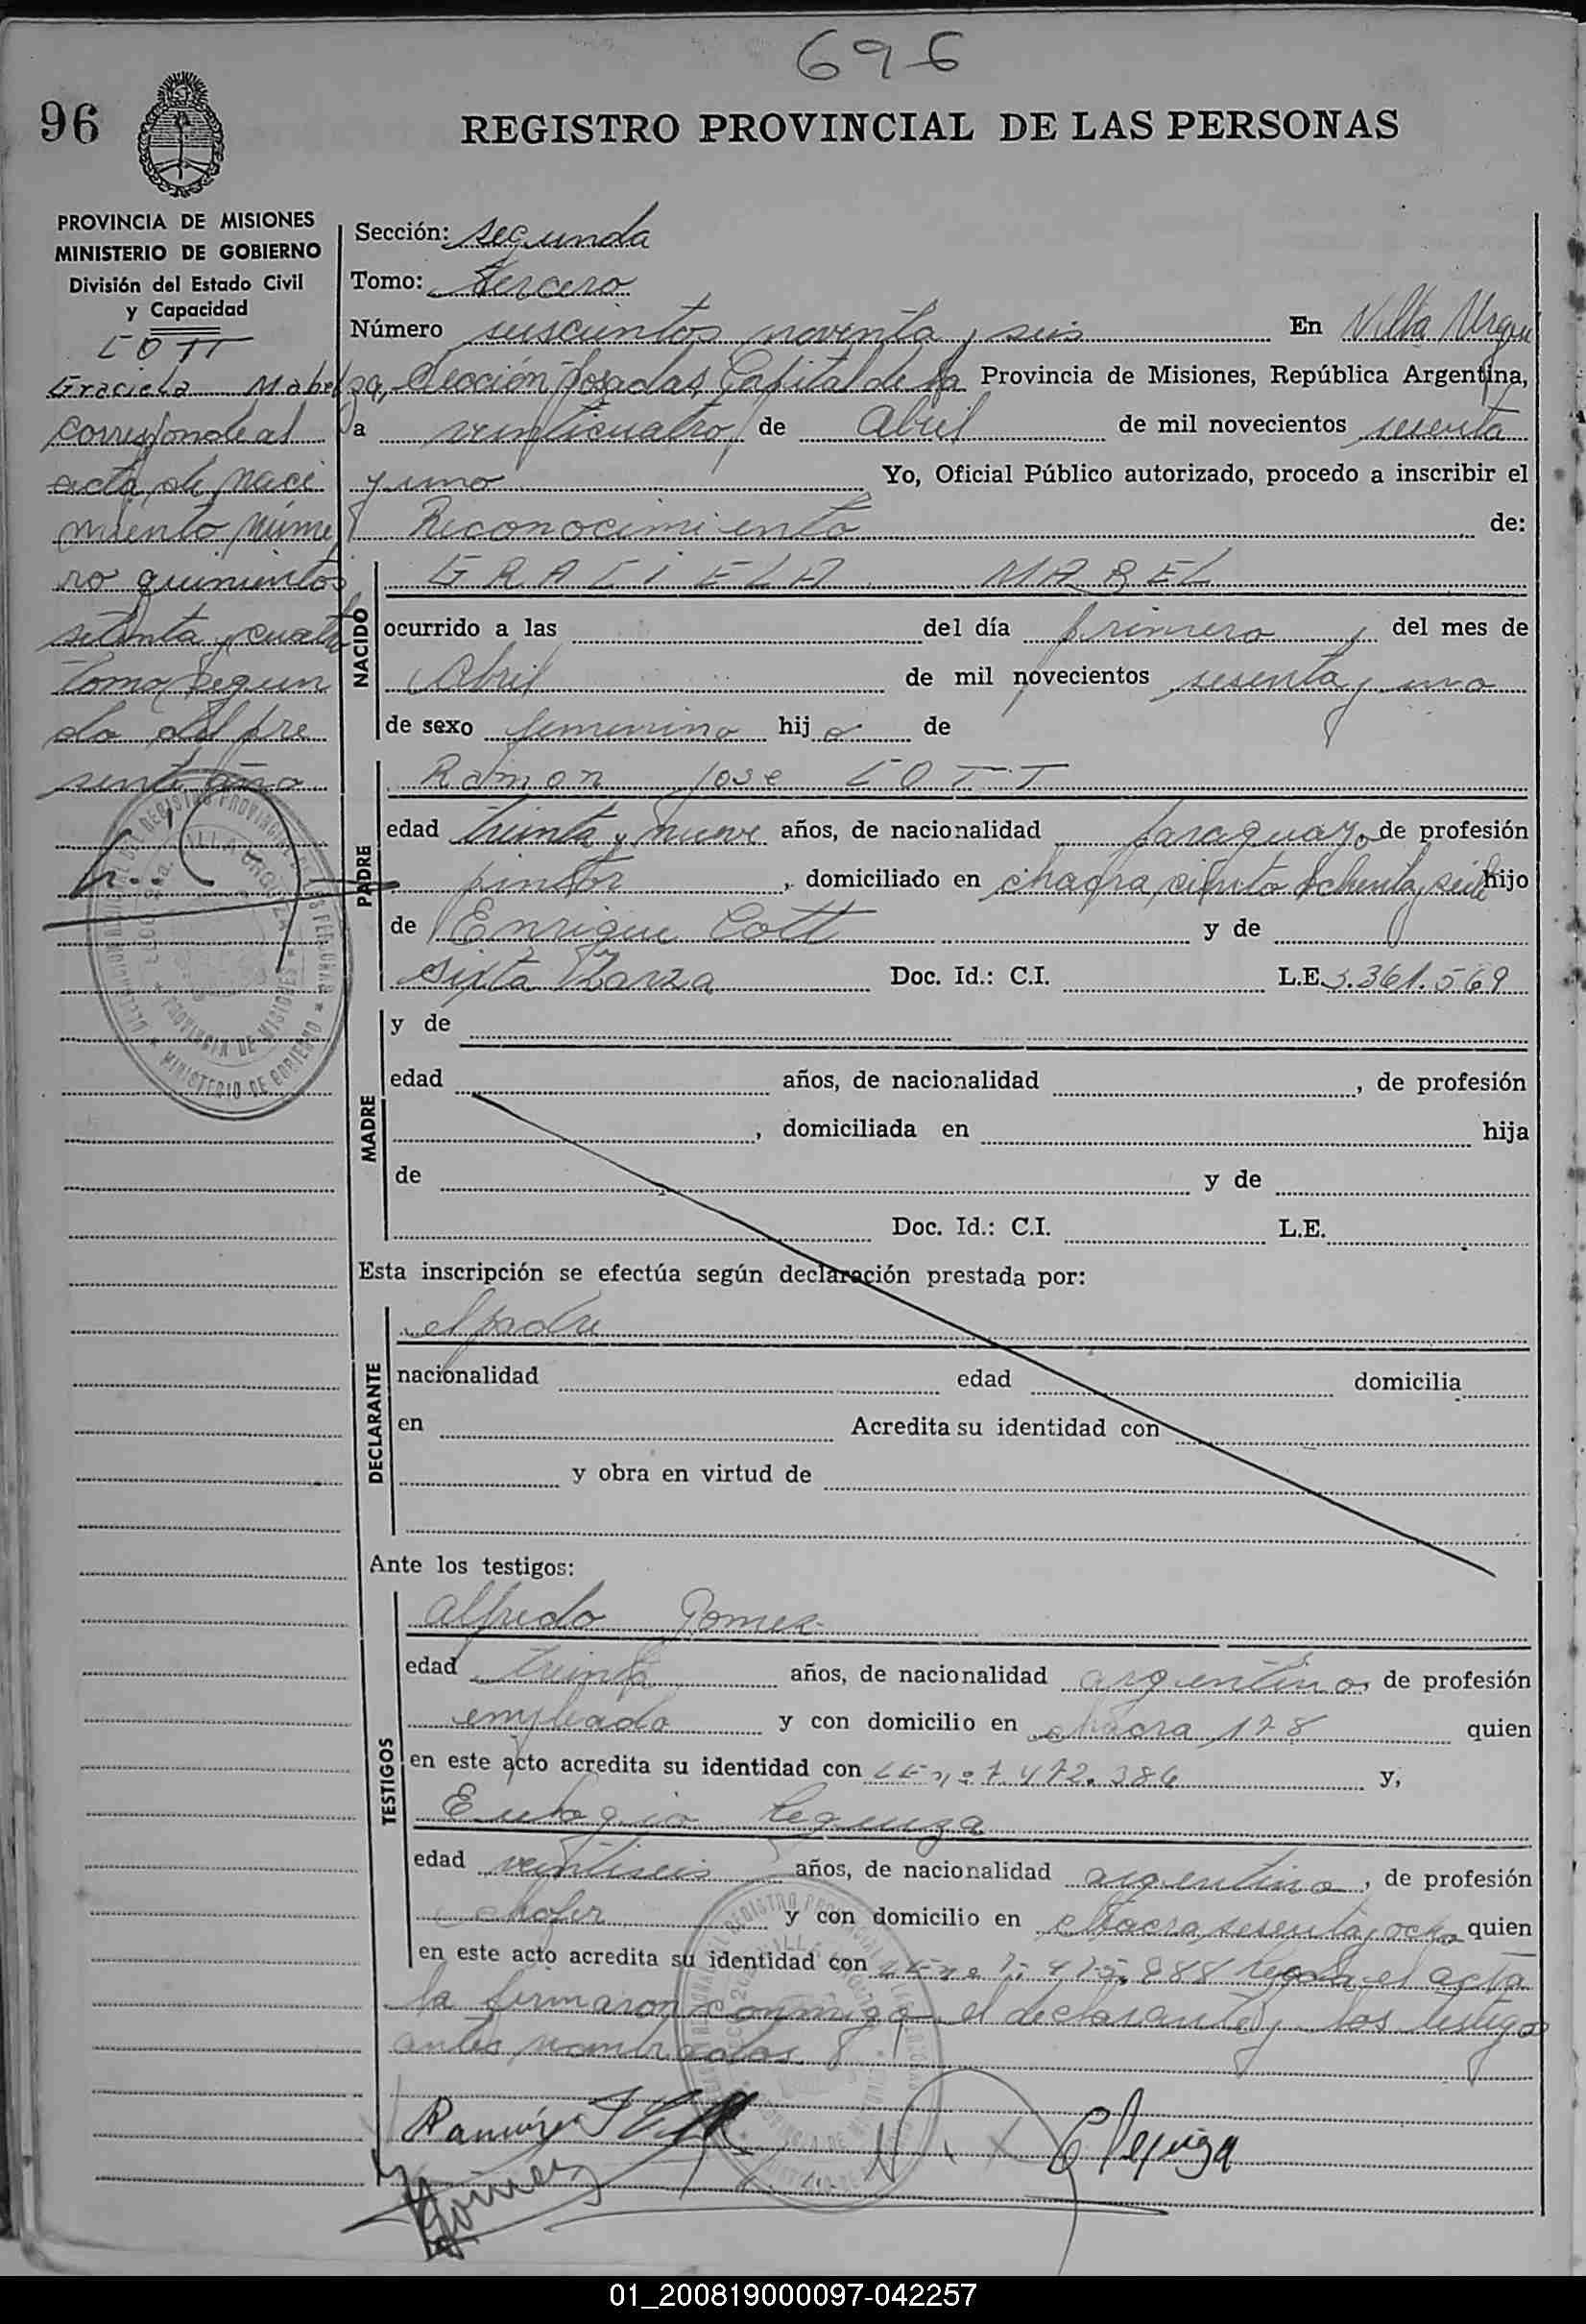 696
96
REGISTRO PROVINCIAL DE LAS PERSONAS
PROVINCIA DE MISIONES
MINISTERIO DE GOBIERNO
División del Estado Civil
y Capacidad
COTT
Graciela Mabel
Corresponde al
acta de naci
miento núme
ro quinientos
setenta y cuatro
Tomo segun
do del pre
sente año
Sección: segunda
Tomo: tercero
Número seiscientos noventa y seis En Villa Urqui
za, Sección Posadas, Capital de la Provincia de Misiones, República Argentina,
a veinticuatro de Abril de mil novecientos sesenta
y uno Yo, Oficial Público autorizado, procedo a inscribir el
Reconocimiento de:
NACIDO
GRACIELA MABEL
ocurrido a las del día primero del mes de
Abril de mil novecientos sesenta y uno
de sexo femenino hij a de
PADRE
Ramon Jose COTT
edad treinta y nueve años, de nacionalidad paraguayo de profesión
pintor, domiciliado en chacra ciento ochenta y siete hijo
de Enrique Cott y de
Sixta Doc. Id.: C.I. L.E. 3.361.569
MADRE
y de
edad años, de nacionalidad , de profesión
, domiciliada en hija
de y de
Doc. Id.: C.I. L.E.
Esta inscripción se efectúa según declaración prestada por:
DECLARANTE
el padre
nacionalidad edad domicilia
en Acredita su identidad con
y obra en virtud de
Ante los testigos:
TESTIGOS
Alfredo Gomez
edad treinta años, de nacionalidad argentino, de profesión
empleado y con domicilio en chacra 128 quien
en este acto acredita su identidad con LE nº 7.472.386 y,
Eulogio Leguiza
edad veintiseis años, de nacionalidad argentino, de profesión
chofer y con domicilio en chacra sesenta y ocho quien
en este acto acredita su identidad con LE nº el acta
la firmaron conmigo el declarante y los testigos
antes nombrados.
Gomez
E Leguiza
01_200819000097-042257